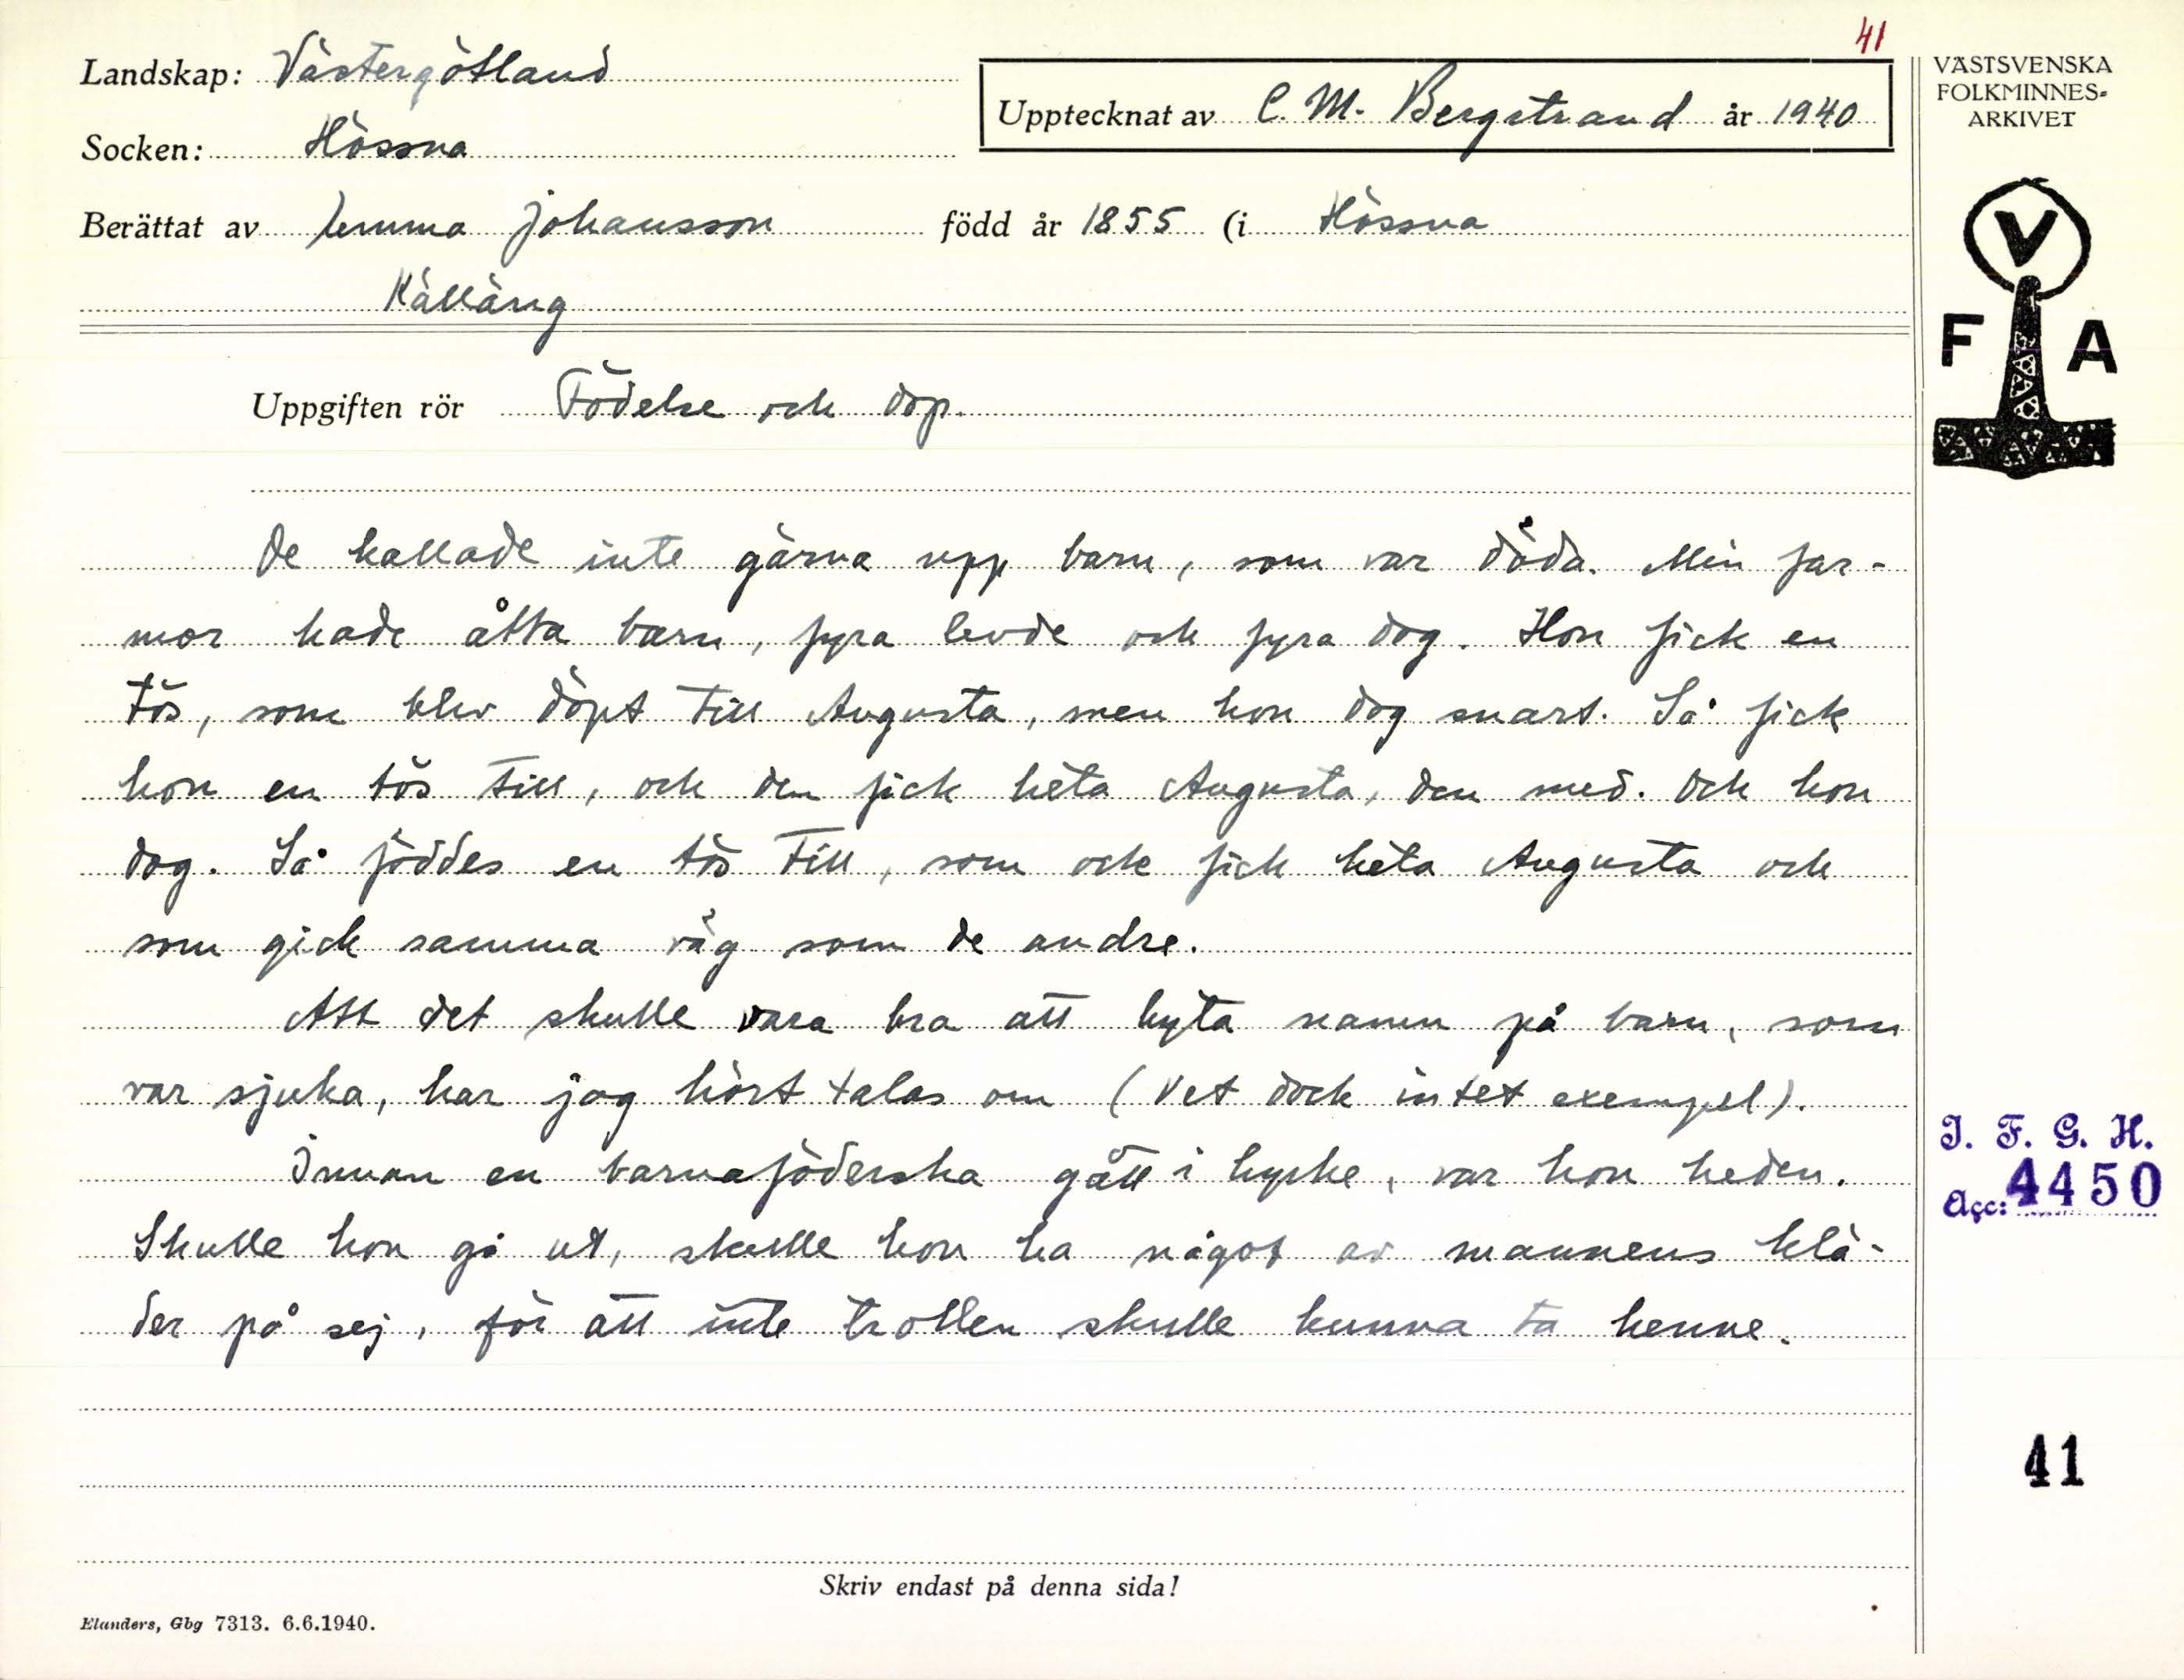 41
Landskap: Västergötland
Upptecknat av C. M. Bergstrand år 1940
VÄSTSVENSKA
FOLKMINNES-
ARKIVET
Socken: Hössna
Berättat av Emma Johansson född år 1855 (i Hössna
Källäng
V
F A
Uppgiften rör Födelse och dop.
De kallade inte gärna upp barn, som var döda. Min far-
mor hade åtta barn, fyra levde och fyra dog. Hon fick en
tös, som blev döpt till Augusta, men hon dog snart. Så fick
hon en tös till, och den fick heta Augusta, den med. Och hon
dog. Så föddes en tös till, som ock fick heta Augusta och
som gick samma väg som de andre.
Att det skulle vara bra att byta namn på barn, som
var sjuka, har jag hört talas om (Vet dock intet exempel).
Innan en barnaföderska gått i kyrke, var hon heden.
Skulle hon gå ut, skulle hon ha något av mannens klä-
der på sej, för att inte trollen skulle kunna ta henne.
I. F. G. H.
Acc: 4450
41
Skriv endast på denna sida!
Elanders, Gbg 7313. 6.6.1940.